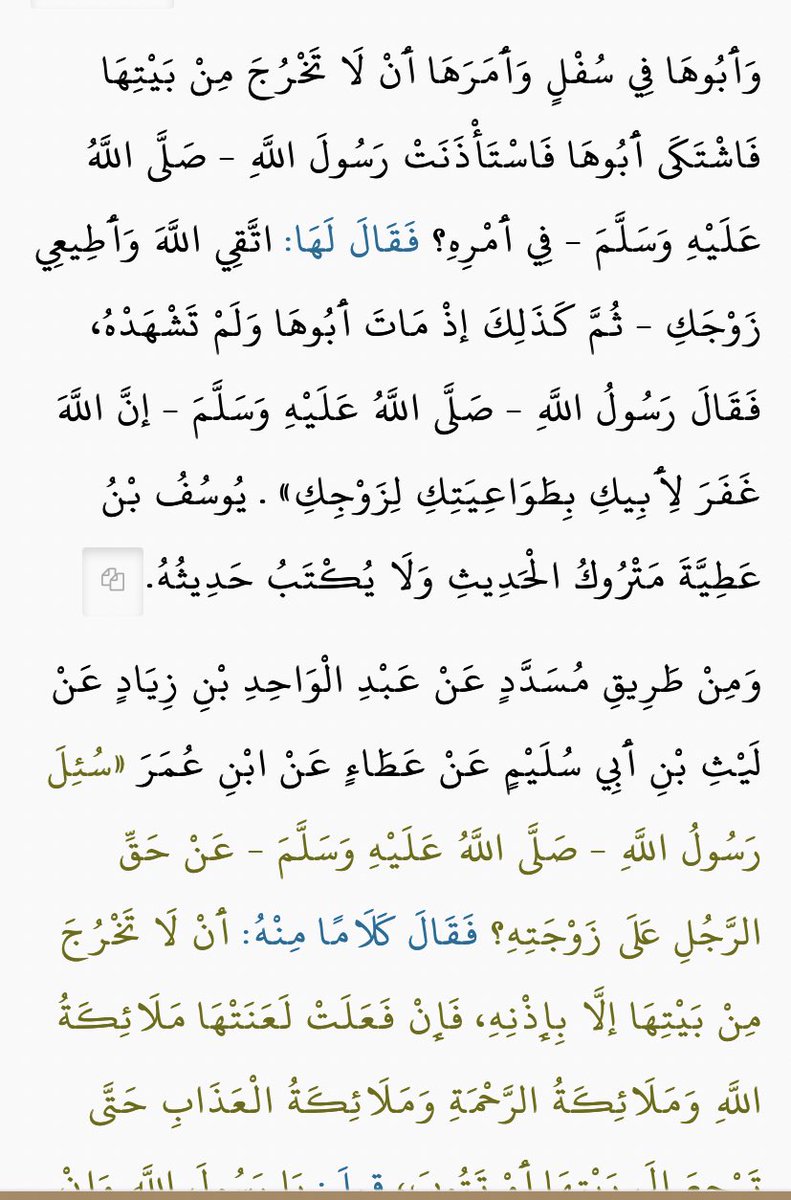 وَأَبُوهَا فِي سُفْلٍ وَأَمَرَهَا أَنْ لَا تَخْرُجَ مِنْ بَيْتِهَا
فَاشْتَكَى أَبُوهَا فَاسْتَأْذَنَتْ رَسُولَ اللَّهِ - صَلَّى اللَّهُ
عَلَيْهِ وَسَلَّمَ - فِي أَمْرِهِ؟ فَقَالَ لَهَا: اتَّقِي اللَّهَ وَأَطِيعِي
زَوْجَكِ - ثُمَّ كَذَلِكَ إذْ مَاتَ أَبُوهَا وَلَمْ تَشْهَدْهُ،
فَقَالَ رَسُولُ اللَّهِ - صَلَّى اللَّهُ عَلَيْهِ وَسَلَّمَ - إنَّ اللَّهَ
غَفَرَ لِأَبِيكِ بِطَوَاعِيَتِكِ لِزَوْجِكِ» . يُوسُفُ بْنُ
عَطِيَّةَ مَتْرُوكُ الْحَدِيثِ وَلَا يُكْتَبُ حَدِيثُهُ.
وَمِنْ طَرِيقِ مُسَدَّدٍ عَنْ عَبْدِ الْوَاحِدِ بْنِ زِيَادٍ عَنْ
لَيْثِ بْنِ أَبِي سُلَيْمٍ عَنْ عَطَاءٍ عَنْ ابْنِ عُمَرَ «سُئِلَ
رَسُولُ اللَّهِ - صَلَّى اللَّهُ عَلَيْهِ وَسَلَّمَ - عَنْ حَقِّ
الرَّجُلِ عَلَى زَوْجَتِهِ؟ فَقَالَ كَلَامًا مِنْهُ: أَنْ لَا تَخْرُجَ
مِنْ بَيْتِهَا إلَّا بِإِذْنِهِ، فَإِنْ فَعَلَتْ لَعَنَتْهَا مَلَائِكَةُ
اللَّهِ وَمَلَائِكَةُ الرَّحْمَةِ وَمَلَائِكَةُ الْعَذَابِ حَتَّى